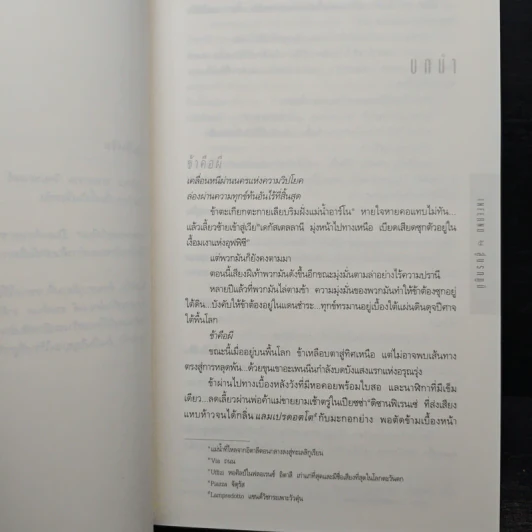 บทนำ
ข้าคือผี
เคลื่อนหนีผ่านนครแห่งความวิปโยค
ล่องผ่านความทุกข์ทนอันไร้ที่สิ้นสุด
ข้าตะเกียกตะกายเลียบริมฝั่งแม่น้ำอาร์โน หายใจหายคอแทบไม่ทัน...
แล้วเลี้ยวซ้ายเข้าสู่เวียเดกัสเตลลานิ มุ่งหน้าไปทางเหนือ เบียดเสียดซุกตัวอยู่ใน
เงื้อมเงาแห่งอุฟฟีซี
แต่พวกมันก็ยังคงตามมา
ตอนนี้เสียงฝีเท้าพวกมันดังขึ้นอีกขณะมุ่งมั่นตามล่าอย่างไร้ความปรานี
หลายปีแล้วที่พวกมันไล่ตามข้า ความมุ่งมั่นของพวกมันทำให้ข้าต้องซุกอยู่
ใต้ดิน...บังคับให้ข้าต้องอยู่ในแดนชำระ...ทุกข์ทรมานอยู่เบื้องใต้แผ่นดินดุจปีศาจ
ใต้พื้นโลก
ข้าคือผี
ขณะนี้เมื่ออยู่บนพื้นโลก ข้าเหลือบตาสู่ทิศเหนือ แต่ไม่อาจพบเส้นทาง
ตรงสู่การหลุดพ้น...ด้วยขุนเขาอะเพนนีนกำลังบดบังแสงแรกแห่งอรุณรุ่ง
ข้าผ่านไปทางเบื้องหลังวังที่มีหอคอยพร้อมใบสอ และนาฬิกาที่มีเข็ม
เดียว...ลดเลี้ยวผ่านพ่อค้าแม่ขายยามเช้าตรู่ในเปียซซาดิซานฟีเรนเซ่ ที่ส่งเสียง
แหบห้าวจนได้กลิ่นแลมเปรดอตโตกับมะกอกอย่าง พอตัดข้ามเบื้องหน้า
แม่น้ำที่ไหลจากอิตาลีตอนกลางลงสู่ทะเลลิกูเรียน
Via ถนน
Uffizi หอศิลป์ในฟลอเรนซ์ อิตาลี เก่าแก่ที่สุดและมีชื่อเสียงที่สุดในโลกตะวันตก
Piazza จัตุรัส
Lampredotto แซนด์วิชกระเพาะวัวตุ๋น
INFERNO